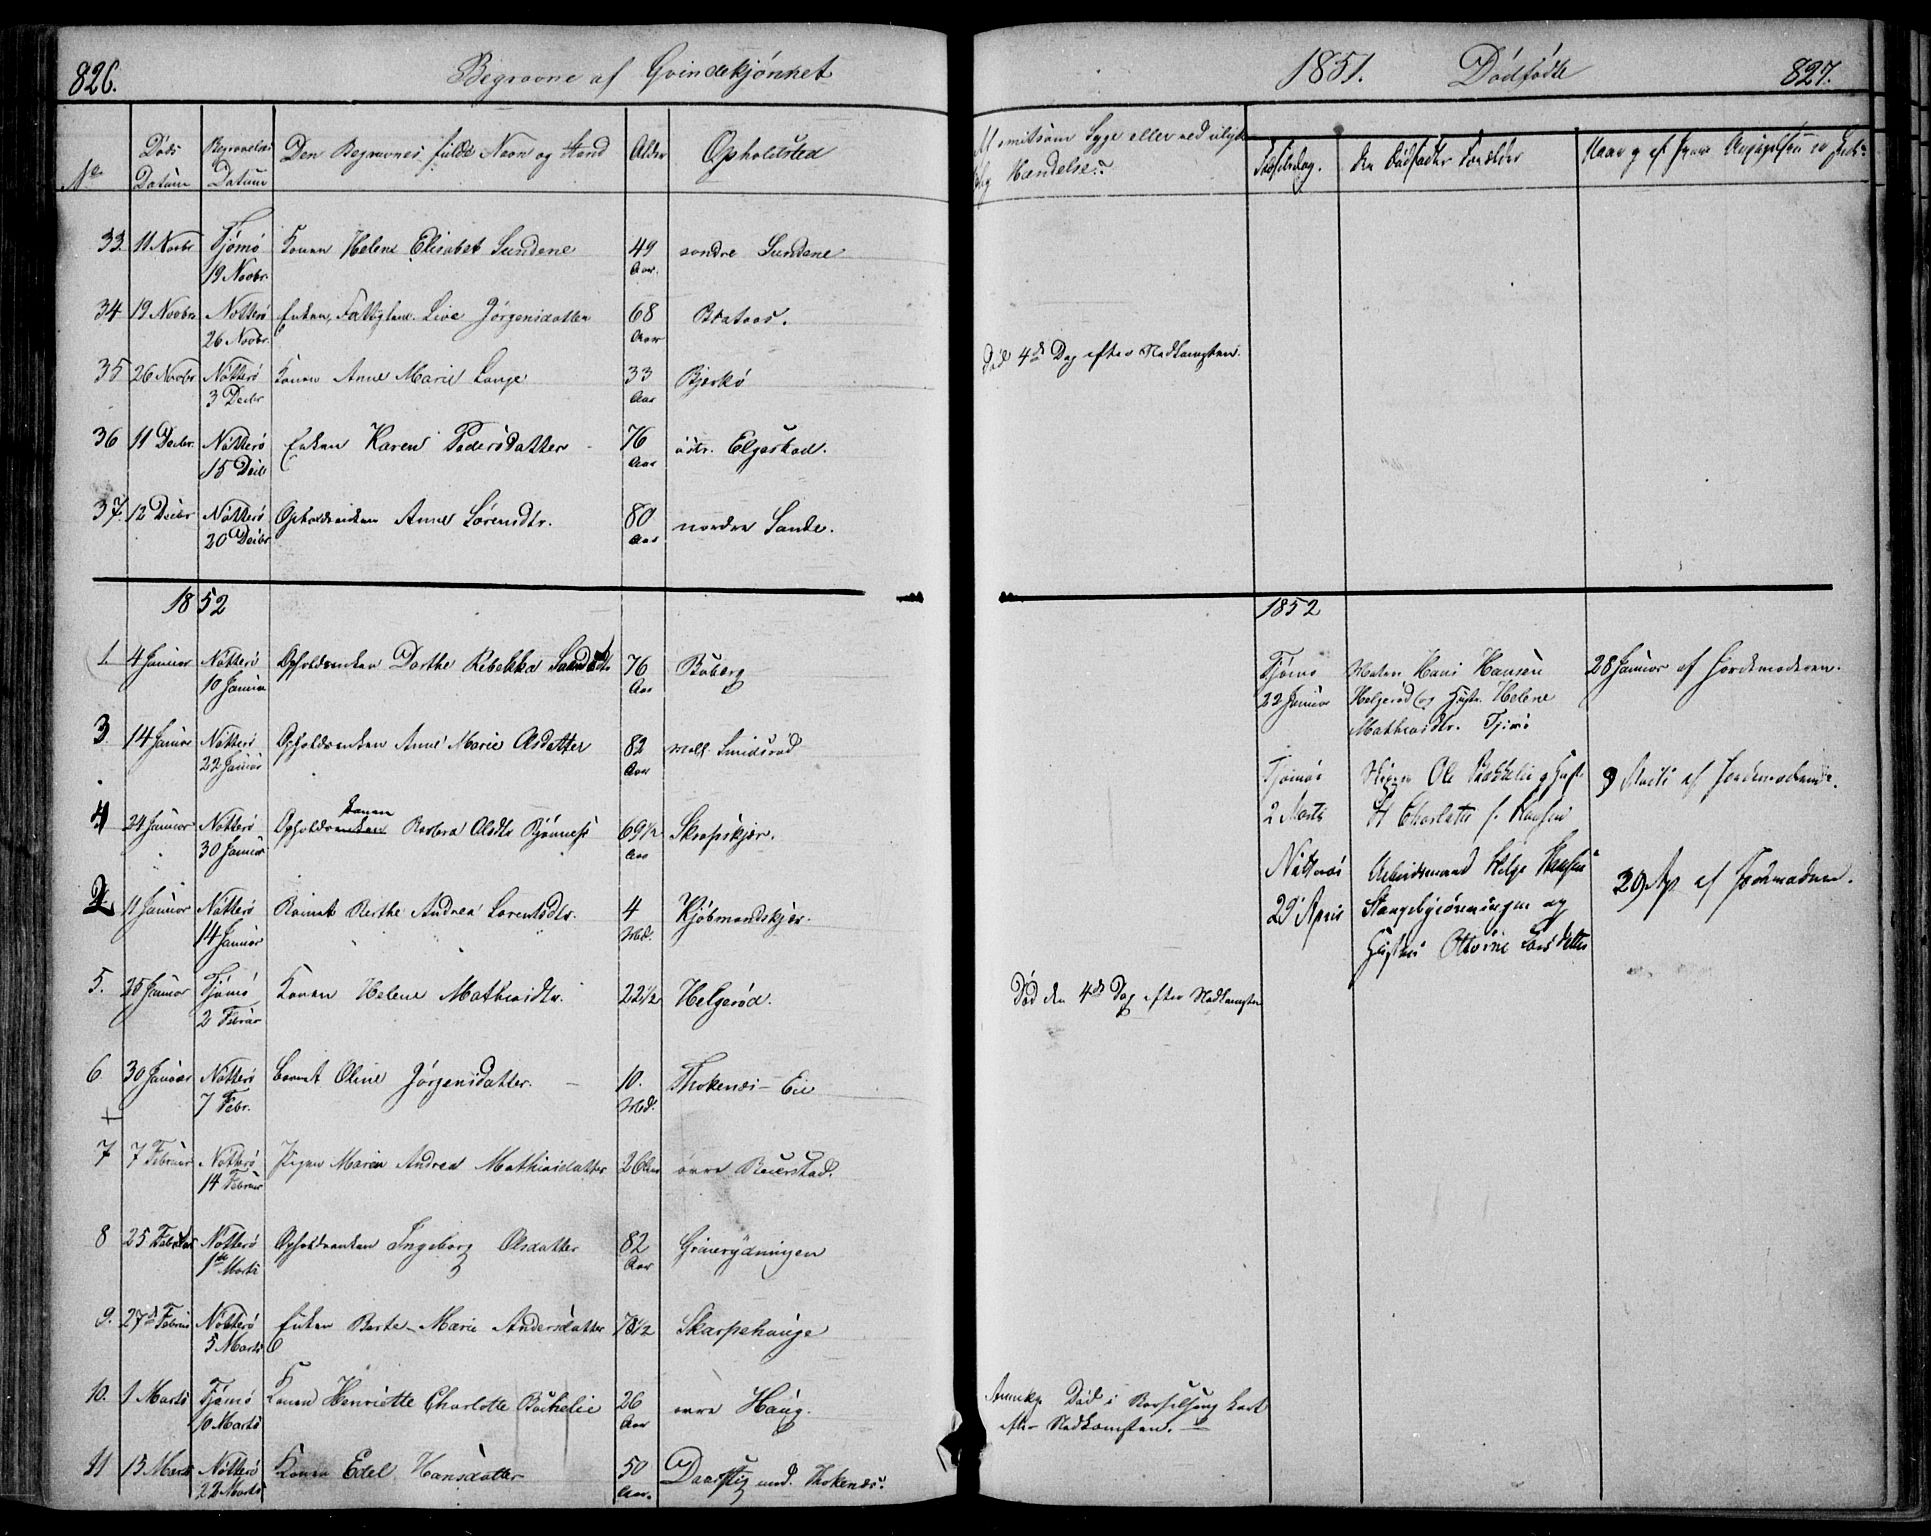 826.
Begravne af Qvindekjønnet
No
Døds Datum
Begravelses Datum
Den Begravnes fulde Navn og Stand
Alder
Opholdsted
33 11 Novbr Tjømø 19 Novbr. Konen Helene Elisabet Sundene 49 Aar. søndre Sundene
34 19 Novbr Nøtterø 26 Novbr. Enken, Fattiglem. Live Jørgensdatter 68 Aar Brataas.
35 26 Novbr Nøtterø 3 Decbr Konen Anne Marie Lange 33 Aar Bjerkø
36 11 Decbr. Nøtterø 15 Decbr Enken Karen Pedersdatter 76 Aar østr. Elgestad.
37. 12 Decbr Nøtterø 20 Decbr Opholdsenken Anne Sørensdtr. 80 Aar nordre Sande.
1852
1. 4 Januar Nøtterø 10 Januar Opholdsenken Dorthe Rebekka 76 Aar Buberg
3. 14 Januar Nøtterø 22 Januar Opholdsenken Anne Marie Olsdatter 82 Aar mell. Smidsrød
4 24 Januar Nøtterø 30 Januar Opholdsenken Konen Barbra Olsdtr Bjønness 69 1/2 Aar Skropskjær.
2. 11 Januar Nøtterø 14 Januar Barnet Berthe Andrea Lorentsdtr. 4 Md. Kjøbmandskjær.
5. 25 Januar Tjømø 2 Februar Konen Helene Mathiasdtr. 22 1/2 Helgerød.
6 30 Januar Nøtterø 7 Febr. Barnet Oline Jørgensdatter. 10. Md. Thokenæs-Eie
7 7 Februar Nøtterø 14 Februar Pigen Maren Andrea Mathiasdatter 26 Aar øvre
8 25 Februar Nøtterø 1ste Marts Opholdsenken Ingeborg Olsdatter 82 Aar Grinerydningen
9. 27de Februar Nøtterø 5 Marts Enken Berte Marie Andersdatter 78 1/2 Skarpehauge
10. 1 Marts Tjømø 10 Marts Konen Henriette Charlotte Bøckelie 26 Aar øvre Haug.
11 13 Marts Nøtterø 22 Marts Konen Edel Hansdatter 50 Aar. und. Thokenæs.
1851. Dødfødte 827.
smitsom Syge eller ved ulykkelig Hændelse.
Fødselsdag.
den dødfødtes Forældre
Naar og af hvem Angivelsen er skedt
Død 4de Dag efter Nedkomsten.
1852
Tjømø 22 Januar Hans Hansen Helgerød og Hustr. Helene Mathiasdtr. Tjømø 28 Januar af Jordemoderen.
Tjømø 2 Marts Ole Bøkkelie og Hust H Charlotte f. Hansen 9 Marts af Jordemoderen.
Nøtterø 29 April Arbeidsmand Helge Stangebyerønningen og Hustru Ottorine Larsdatter 29 Ap af Jordemoderen.
Død den 4de Dag efter Nedkomsten
Anmkg. Død i Barselseng kort efter Nedkomsten.